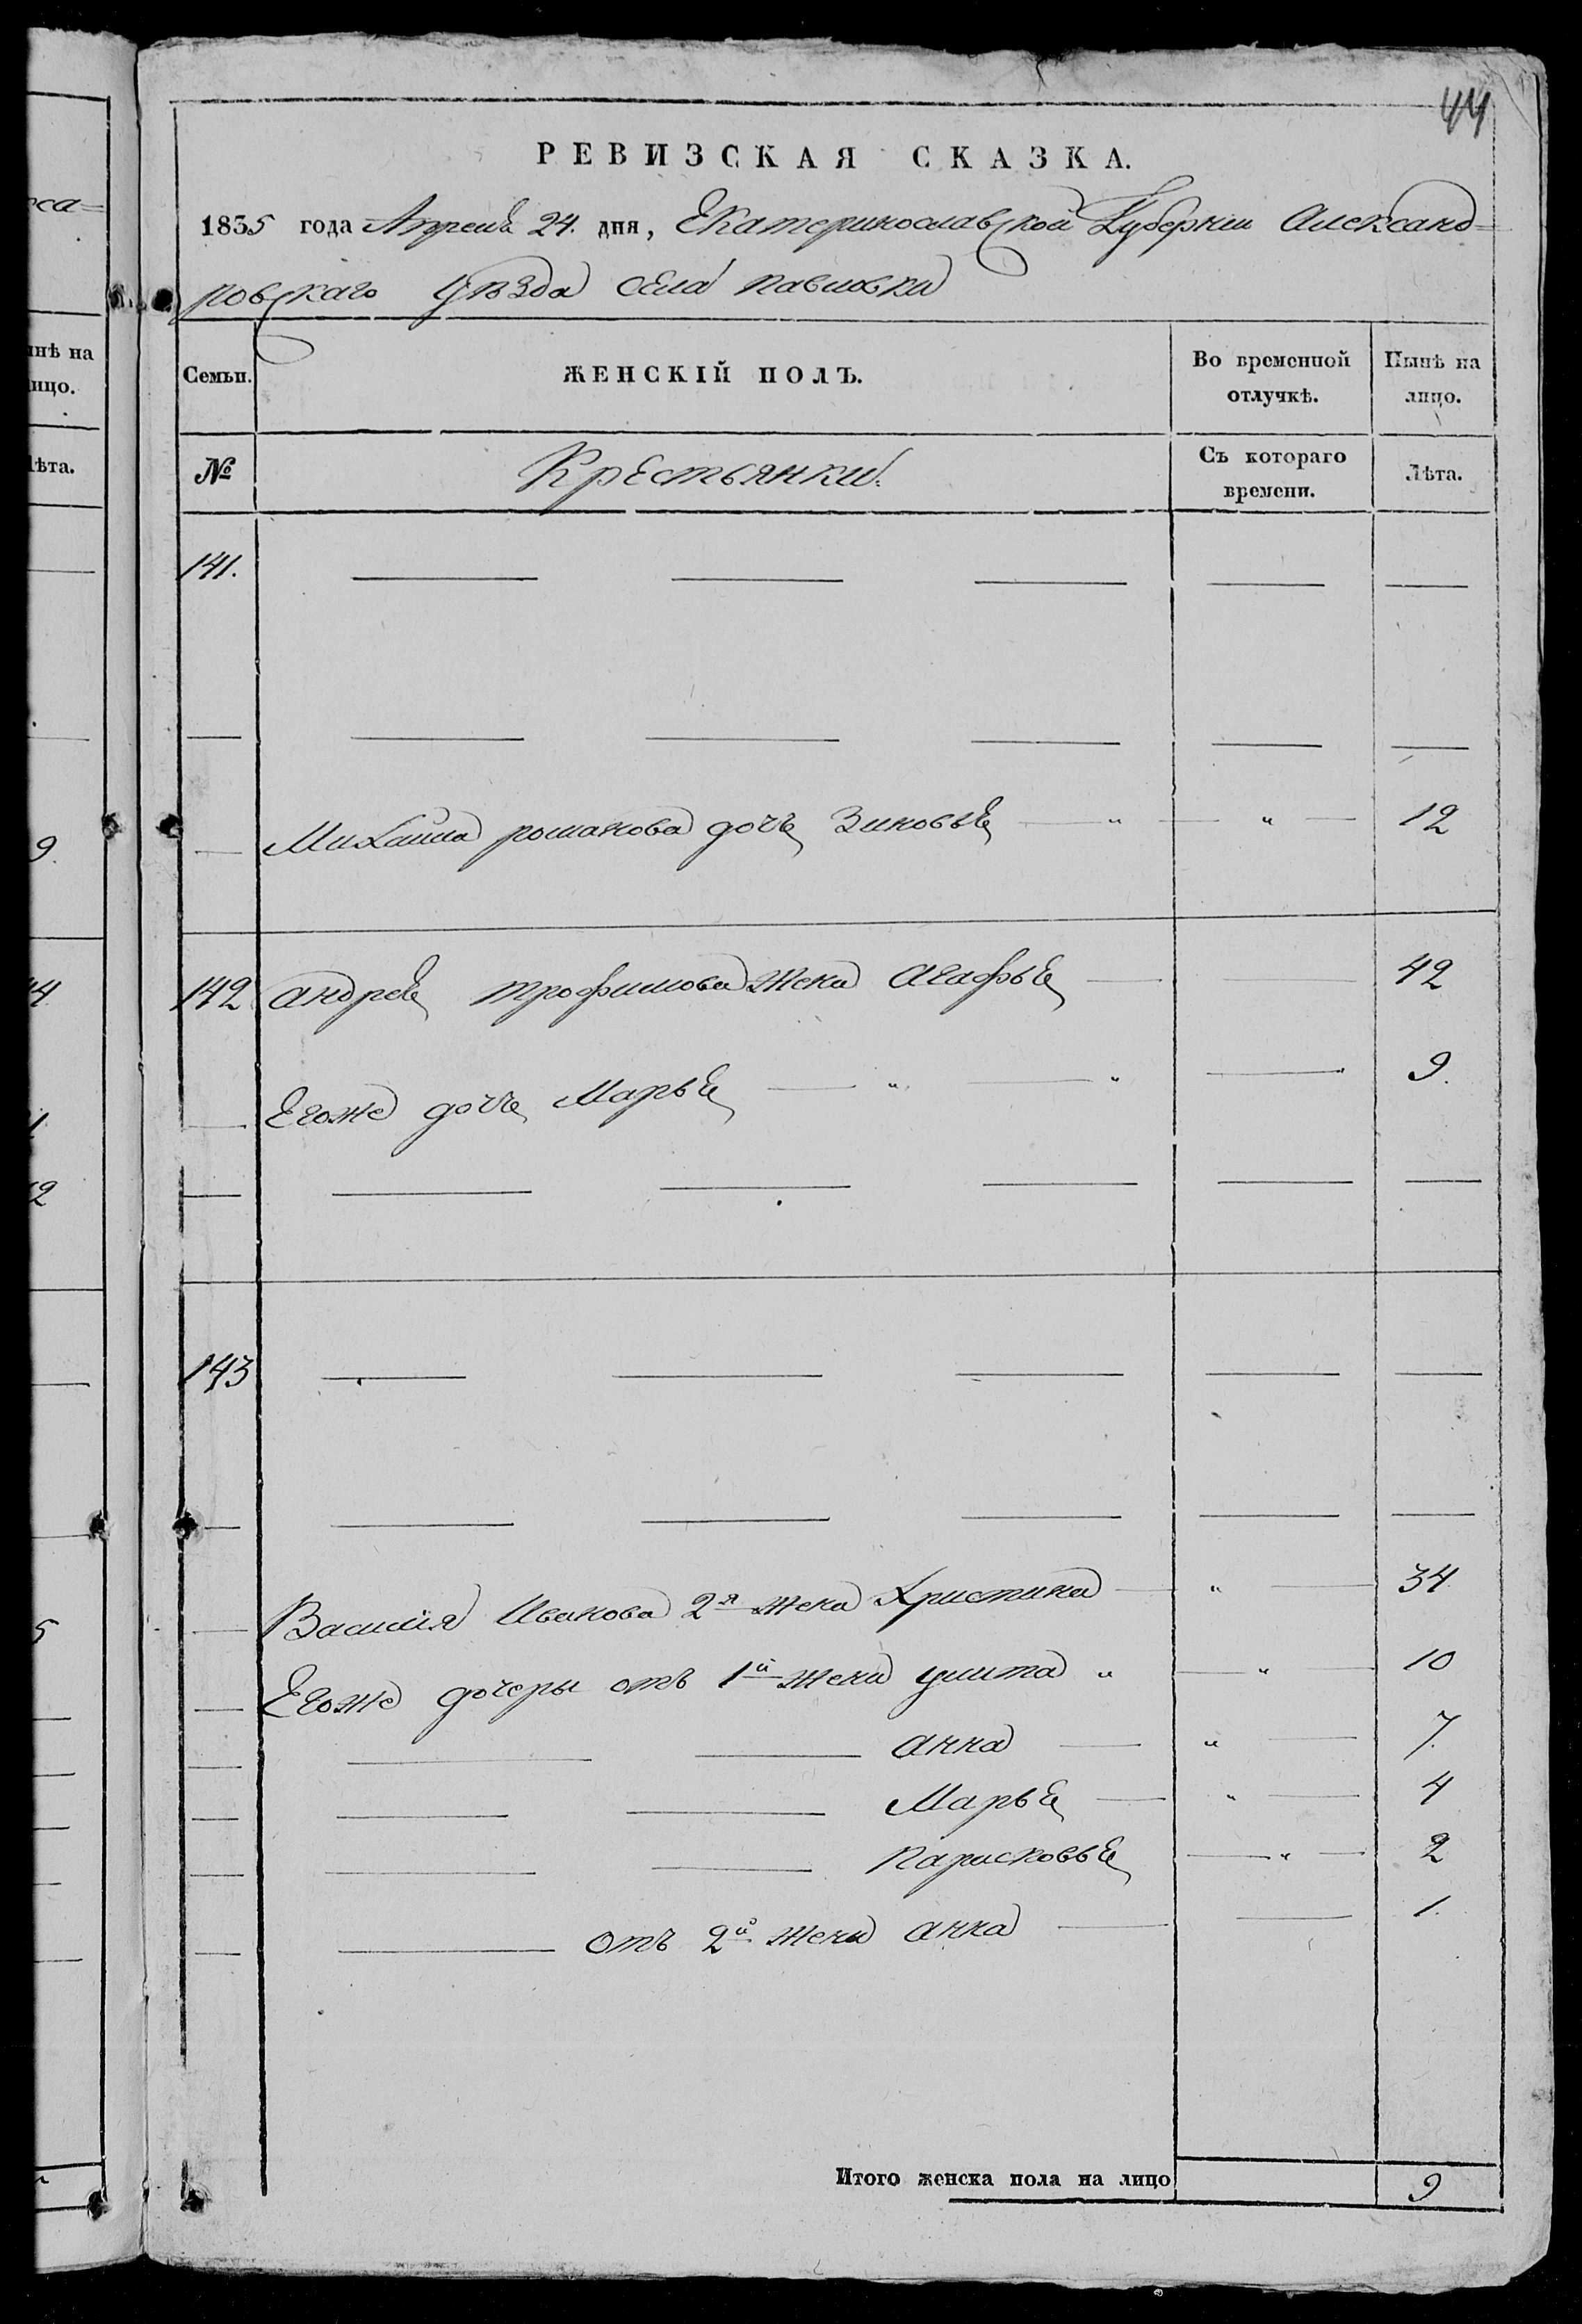 44
РЕВИЗСКАЯ СКАЗКА.
1835 года Апреля 24. дня, Екатеринославской Губернии Александ=
ровскаго Уѣзда села Павловки
Семьи. ЖЕНСКІЙ ПОЛЪ. Во временной отлучкѣ. Нынѣ на лицо.
№ Крестьянки. Съ котораго времени. Лѣта.
141.
Михайла романова дочь Зиновья " " 12
142 андрея трофимова жена агафья 42
Егоже дочь Марья " " 9.
143
Василія Иванова 2я жена Христина " 34
Егоже дочеры отъ 1й жены улита " " 10
анна " 7.
Марья " 4
Парасковья " 2
отъ 2й жены анна 1.
Итого женска пола на лицо 9
са=
инѣ на
ицо.
лѣта.
9.
14
1
12
5